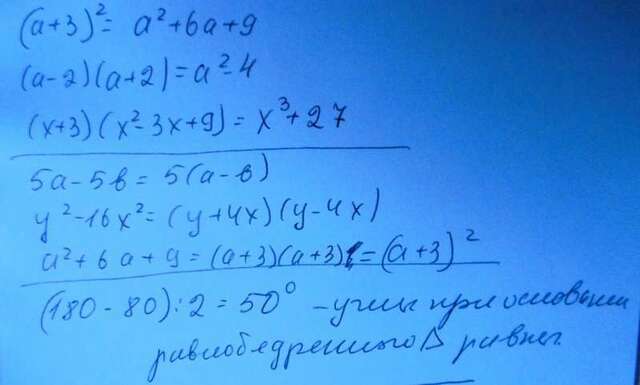 (a+3)² = a²+6a+9
(a-2)(a+2)=a²-4
(x+3)(x²-3x+9)=x³+27
5a-5b=5(a-b)
y²-16x²=(y+4x)(y-4x)
a²+6a+9=(a+3)(a+3)=(a+3)²
(180-80):2=50° - углы при основании
равнобедренного Δ равны.